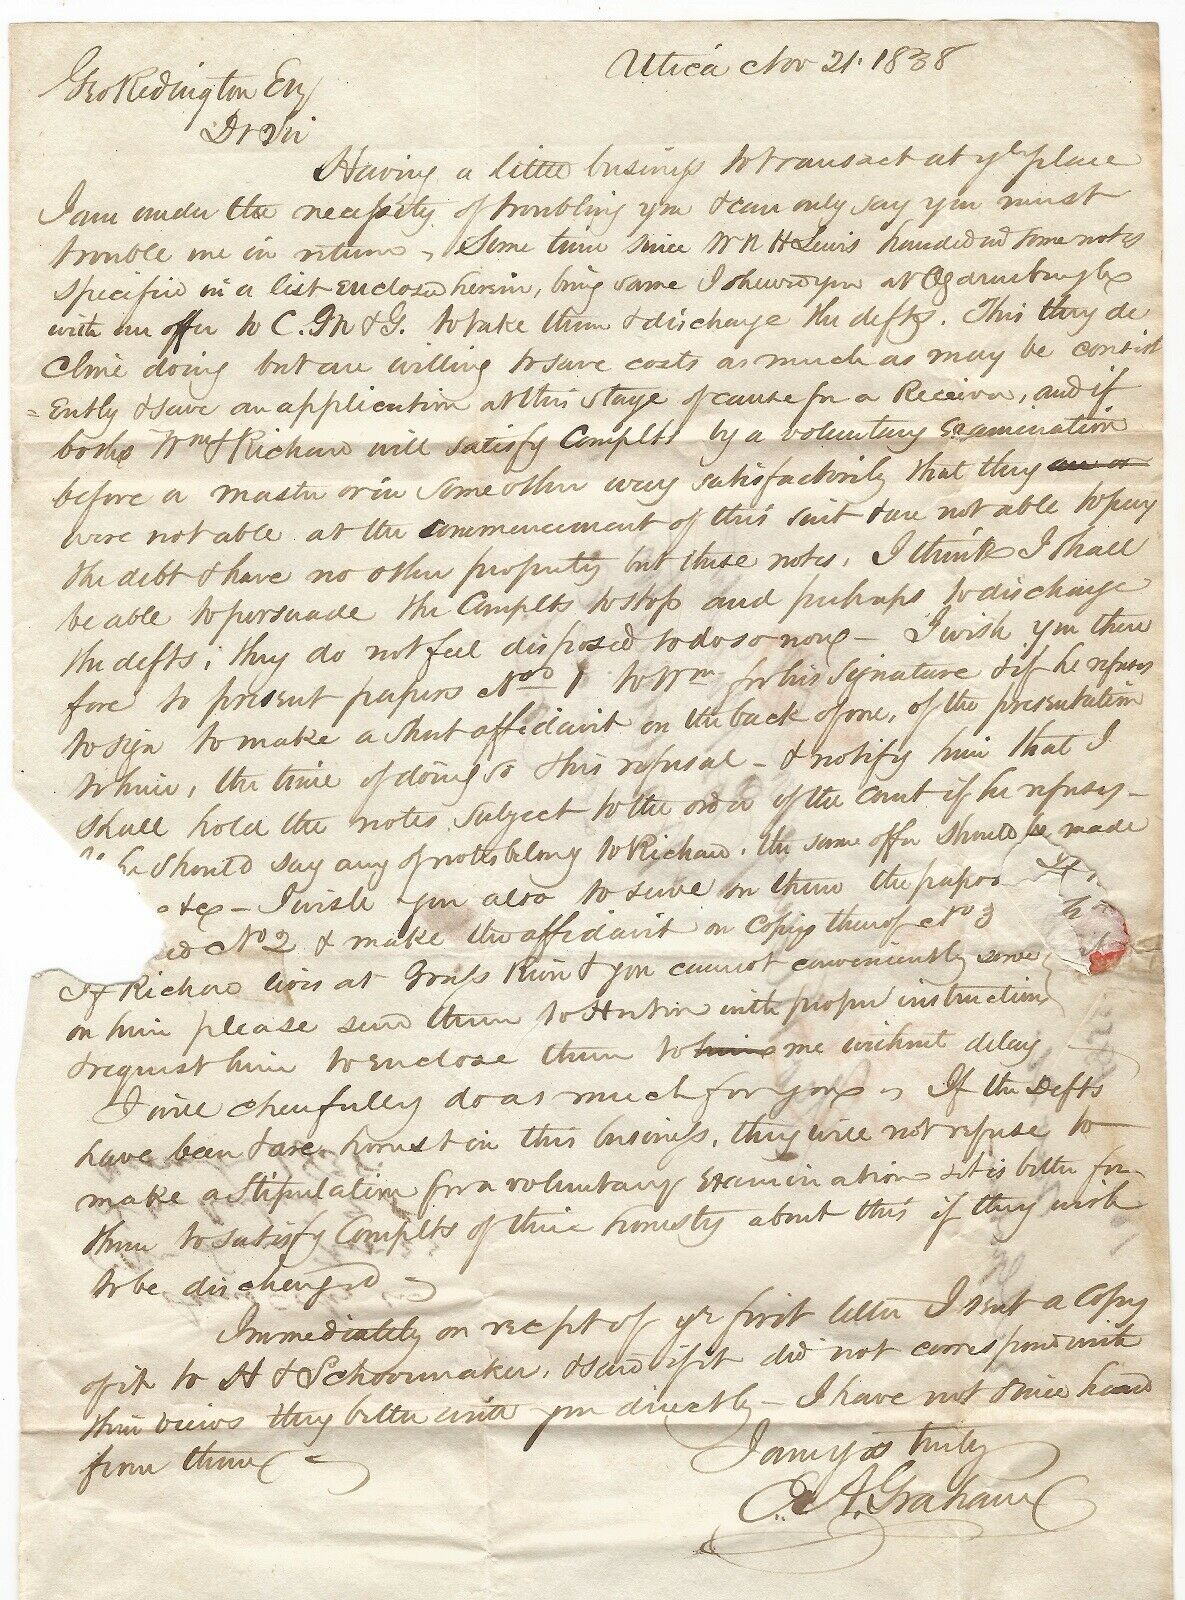 Utica Nov 21. 1838
Geo Redington Esq
Dr Sir
Having a little business to transact at yr place
I am under the necessity of troubling you & can only say you must
trouble me in return, Some time since Wm H Lewis handed me some notes
specified in a list enclosed herein, being same I shewed you at Ogdensburgh
with an offer to C. & G. to take them & discharge the defts. This they de
cline doing but are willing to save costs as much as may be consist
=ently & save an application at this stage of cause for a Receiver, and if
both Wm & Richard will satisfy Complts by a voluntary Examination
before a master or in some other way satisfactorily that they are or
were not able at the commencement of this suit & are not able to pay
the debt & have no other property but these notes. I think I shall
be able to persuade the Complts to stop and perhaps to discharge
the defts; they do not feel disposed to do so now - I wish you there
fore to present papers No 1 to Wm for his signature & if he refuses
to sign to make a short affidavit on the back of one, of the presentation
to him, the time of doing so & his refusal - & notify him that I
shall hold the notes subject to the order of the Court if he refuses -
he should say any of notes belong to Richard, the same offer should be made
&c - I wish you also to serve on them the papers
No 2 & make the affidavit on copys thereof No 3
If Richard lives at Grass River & you cannot conveniently serve
on him please send them to with proper instructions
& request him to enclose them to him me without delay
I will cheerfully do as much for you, If the Defts
have been & are honest in this business, they will not refuse to
make a stipulation for a voluntary Examination & it is better for
them to satisfy Complts of their honesty about this if they wish
to be discharged,
Immediately on recpt of yr first letter I sent a copy
of it to H & Schoonmaker, & said if it did not correspond with
their views they better write you directly - I have not since heard
from them
I am yrs truly
C. A. Graham